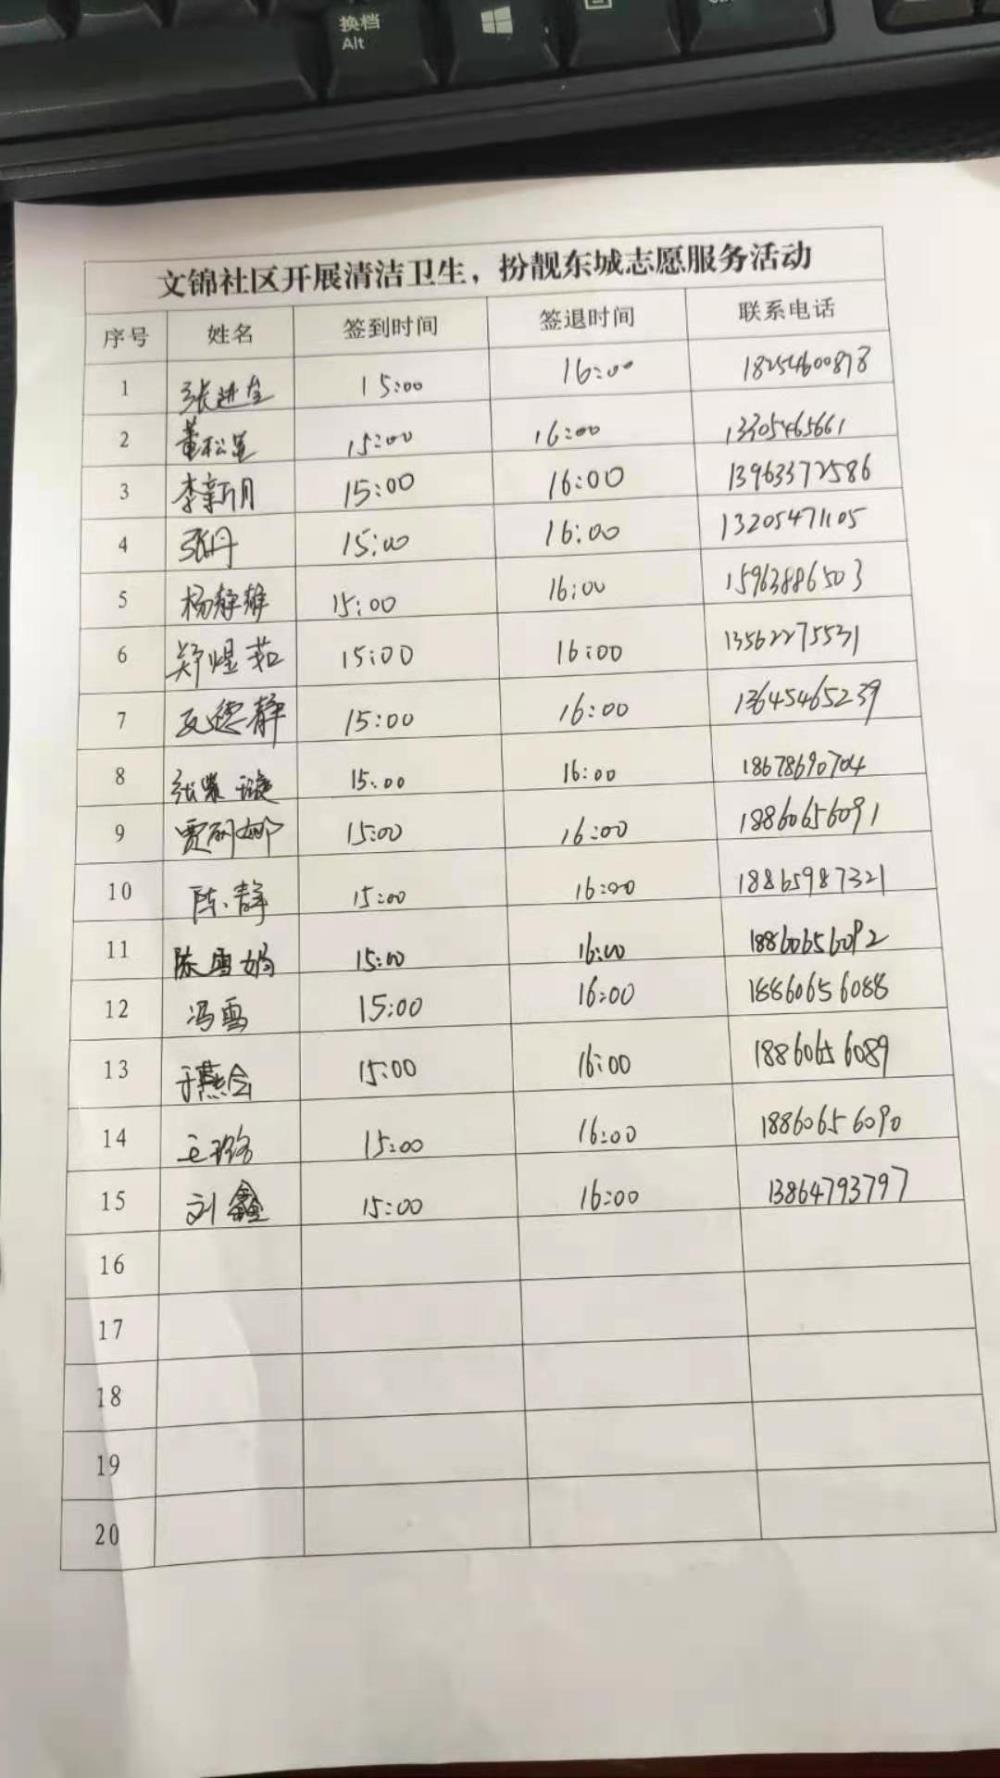 换档
Alt
文锦社区开展清洁卫生，扮靓东城志愿服务活动
序号 姓名 签到时间 签退时间 联系电话
1 张进全 15:00 16:00 18254600878
2 董松 15:00 16:00 13305465661
3 李新月 15:00 16:00 13963372586
4 张丹 15:00 16:00 13205471105
5 杨静雅 15:00 16:00 15963886503
6 郑煜茹 15:00 16:00 13562275531
7 德静 15:00 16:00 13645465239
8 张 璇 15:00 16:00 18678690704
9 贾丽娜 15:00 16:00 18860656091
10 陈静 15:00 16:00 18865987321
11 陈雪娟 15:00 16:00 18860656092
12 冯雪 15:00 16:00 18860656088
13 于燕会 15:00 16:00 18860656089
14 王璐 15:00 16:00 18860656090
15 刘鑫 15:00 16:00 13864793797
16
17
18
19
20